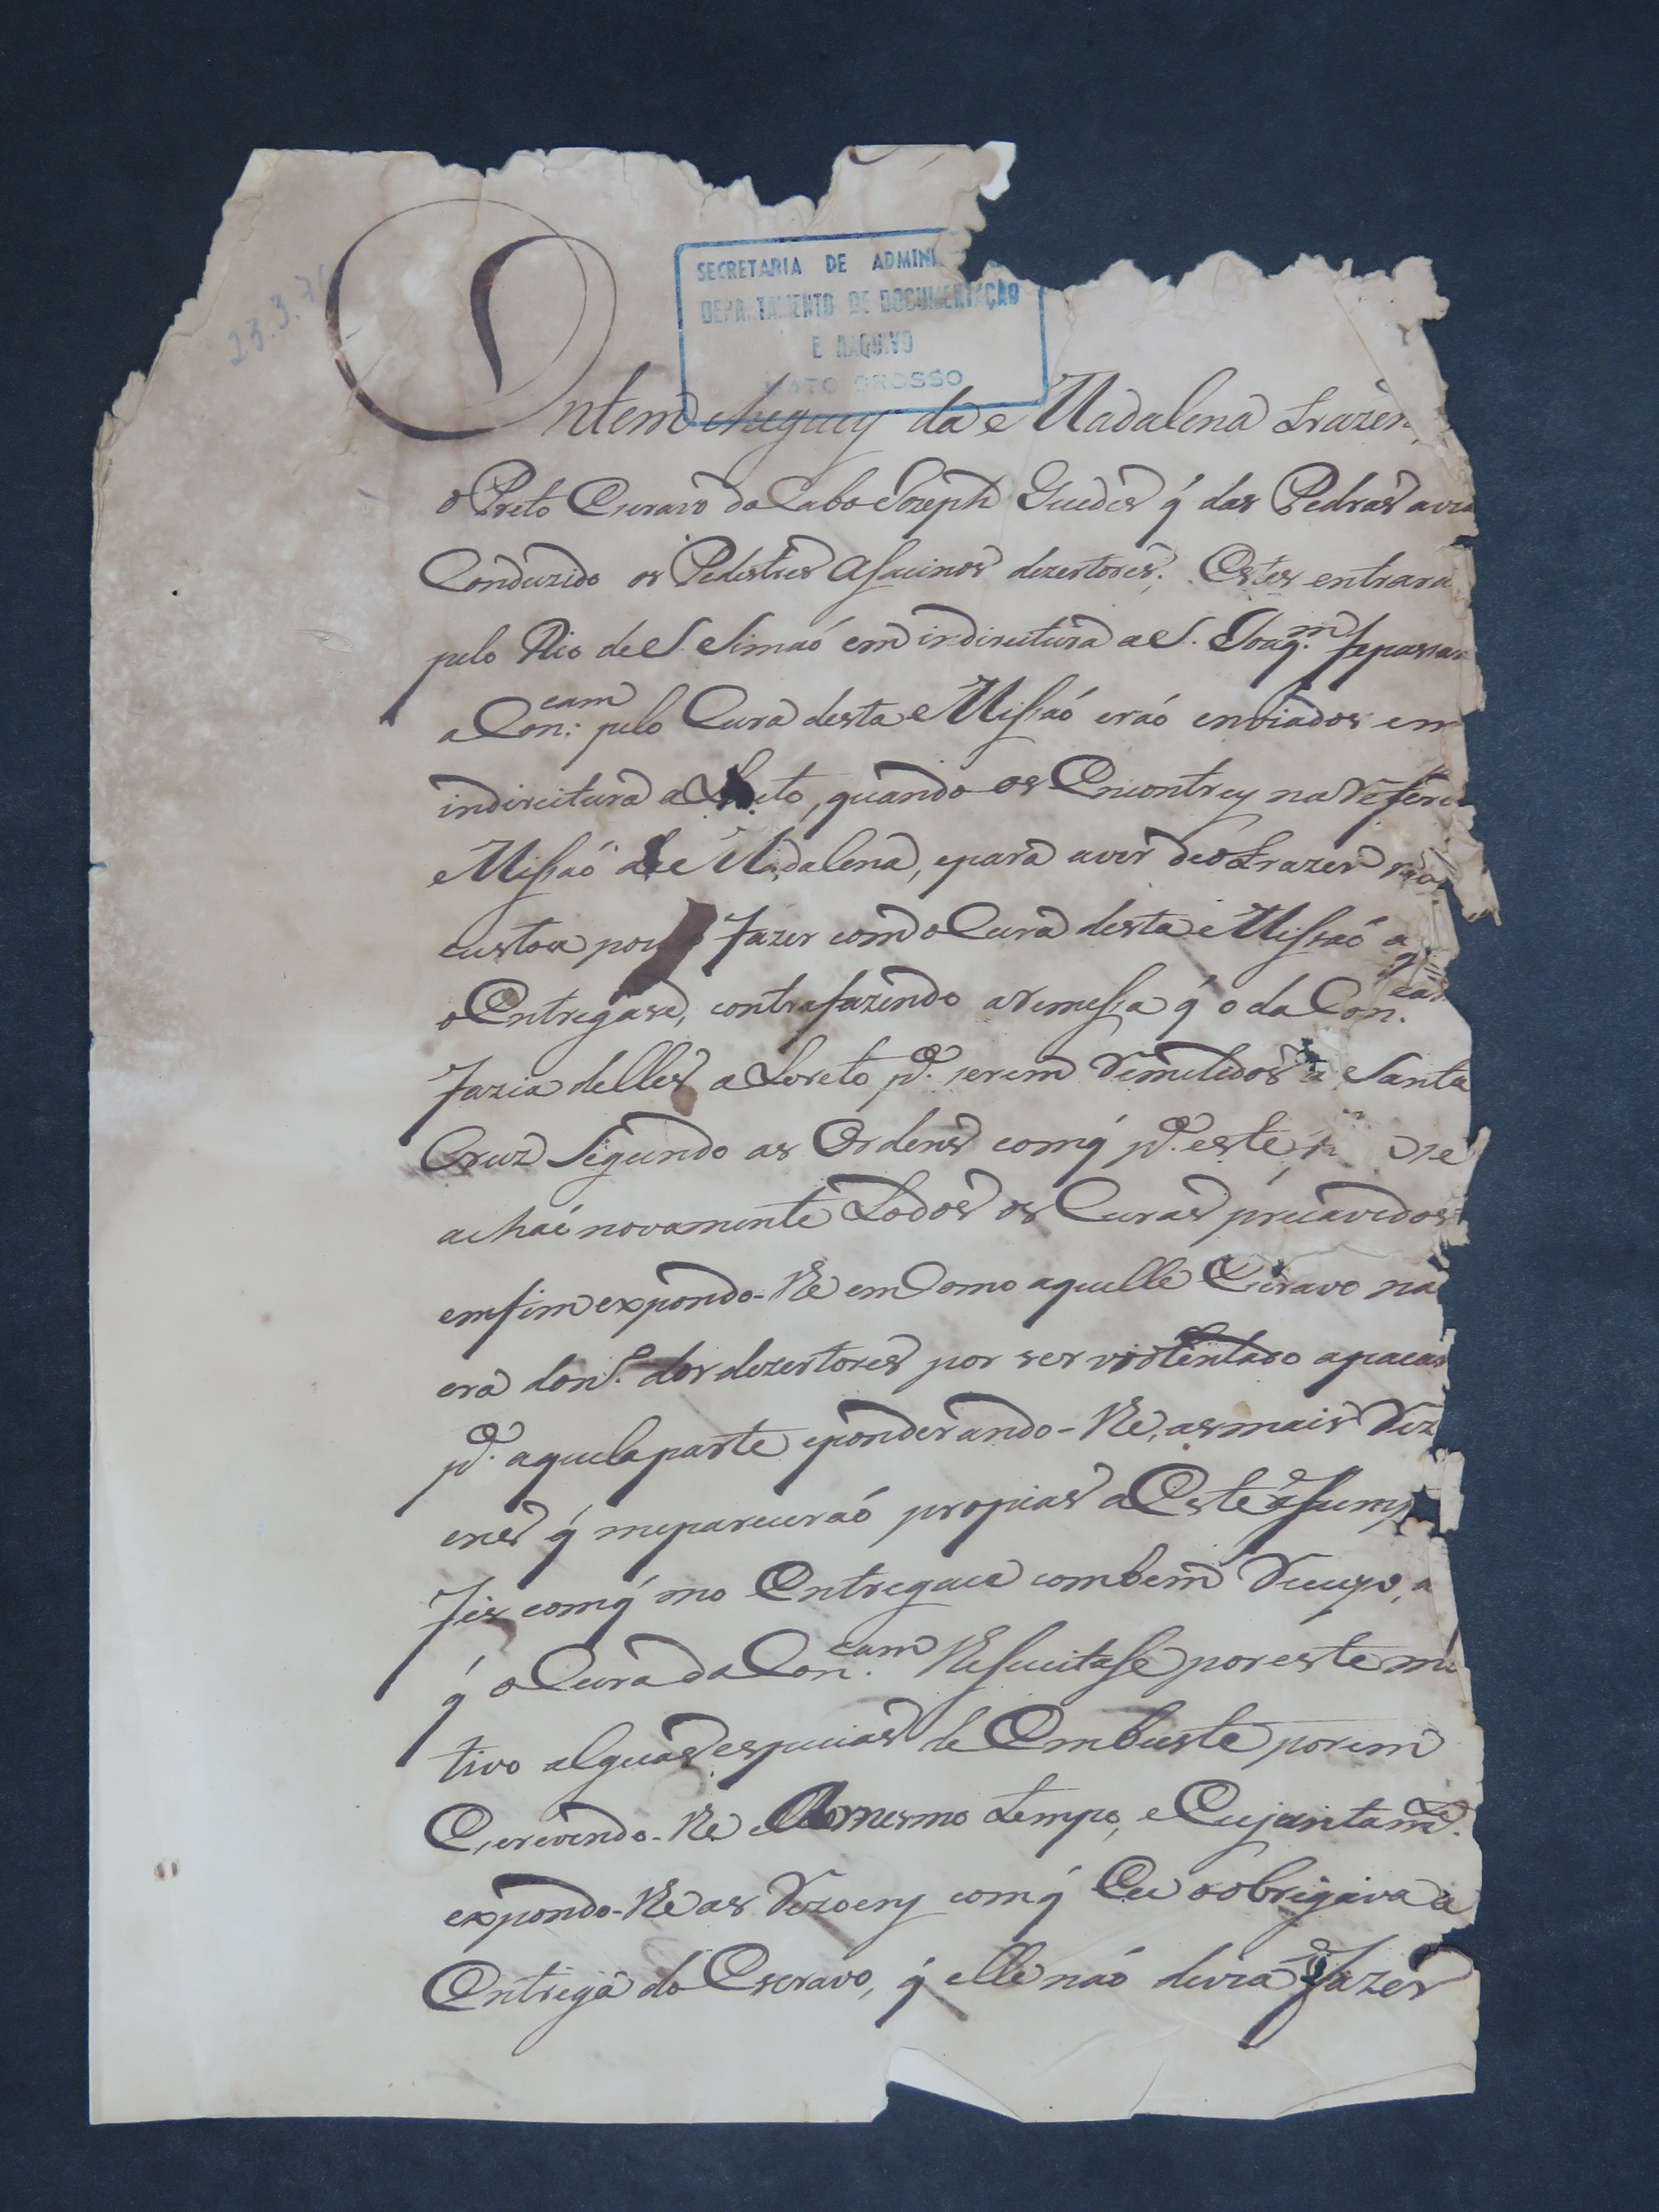 23.3.7
SECRETARIA DE ADMINI
DEPARTAMENTO DE DOCUMENTAÇÃO
E ARQUIVO
MATO GROSSO
Ontem cheguey da Madalena trazen
o Preto Escravo do Cabo Jozeph Guedes q̃ das Pedras avia
Conduzido os Pedestres Asacinos dezertores; Estes entrara
pelo Rio de S. Simaó em indireitura a S. Joaq.m se passar
a Con:cam pelo Cura desta Missaó eraó enviados em
indireitura a Loreto, quando os Encontrey na Refer
Missaó de Madalena, e para aver de o trazer não
custou pouco fazer com o Cura desta Missaó a q
o Entregase, contrafazendo a remessa q̃ o da Con.cam
fazia delles a Loreto p.a serem Remetidos a Santa
Cruz Segundo as Ordens com q̃ p.a este se
achaé novamente todos os Curas precavidos
emfim expondo-lhe em Como aquelle Escravo na
era do n.o dos dezertores por ser violentado a pacar
p.a aquela parte e ponderando-lhe, as mais Rez
ens q̃ me pareceraó propias a Este asump
fes com q̃ mo Entregace com bem Receyo, a
q̃ o Cura da Con.cam Resucitase por este mo
tivo algūas especias de Embuste porem
Escrevendo-lhe ao mesmo tempo, e Cujuntam.te
expondo-lhe as Rezoens com q̃ Eu o obrigava a
Entrega do Escravo, q̃ elle naó devia fazer